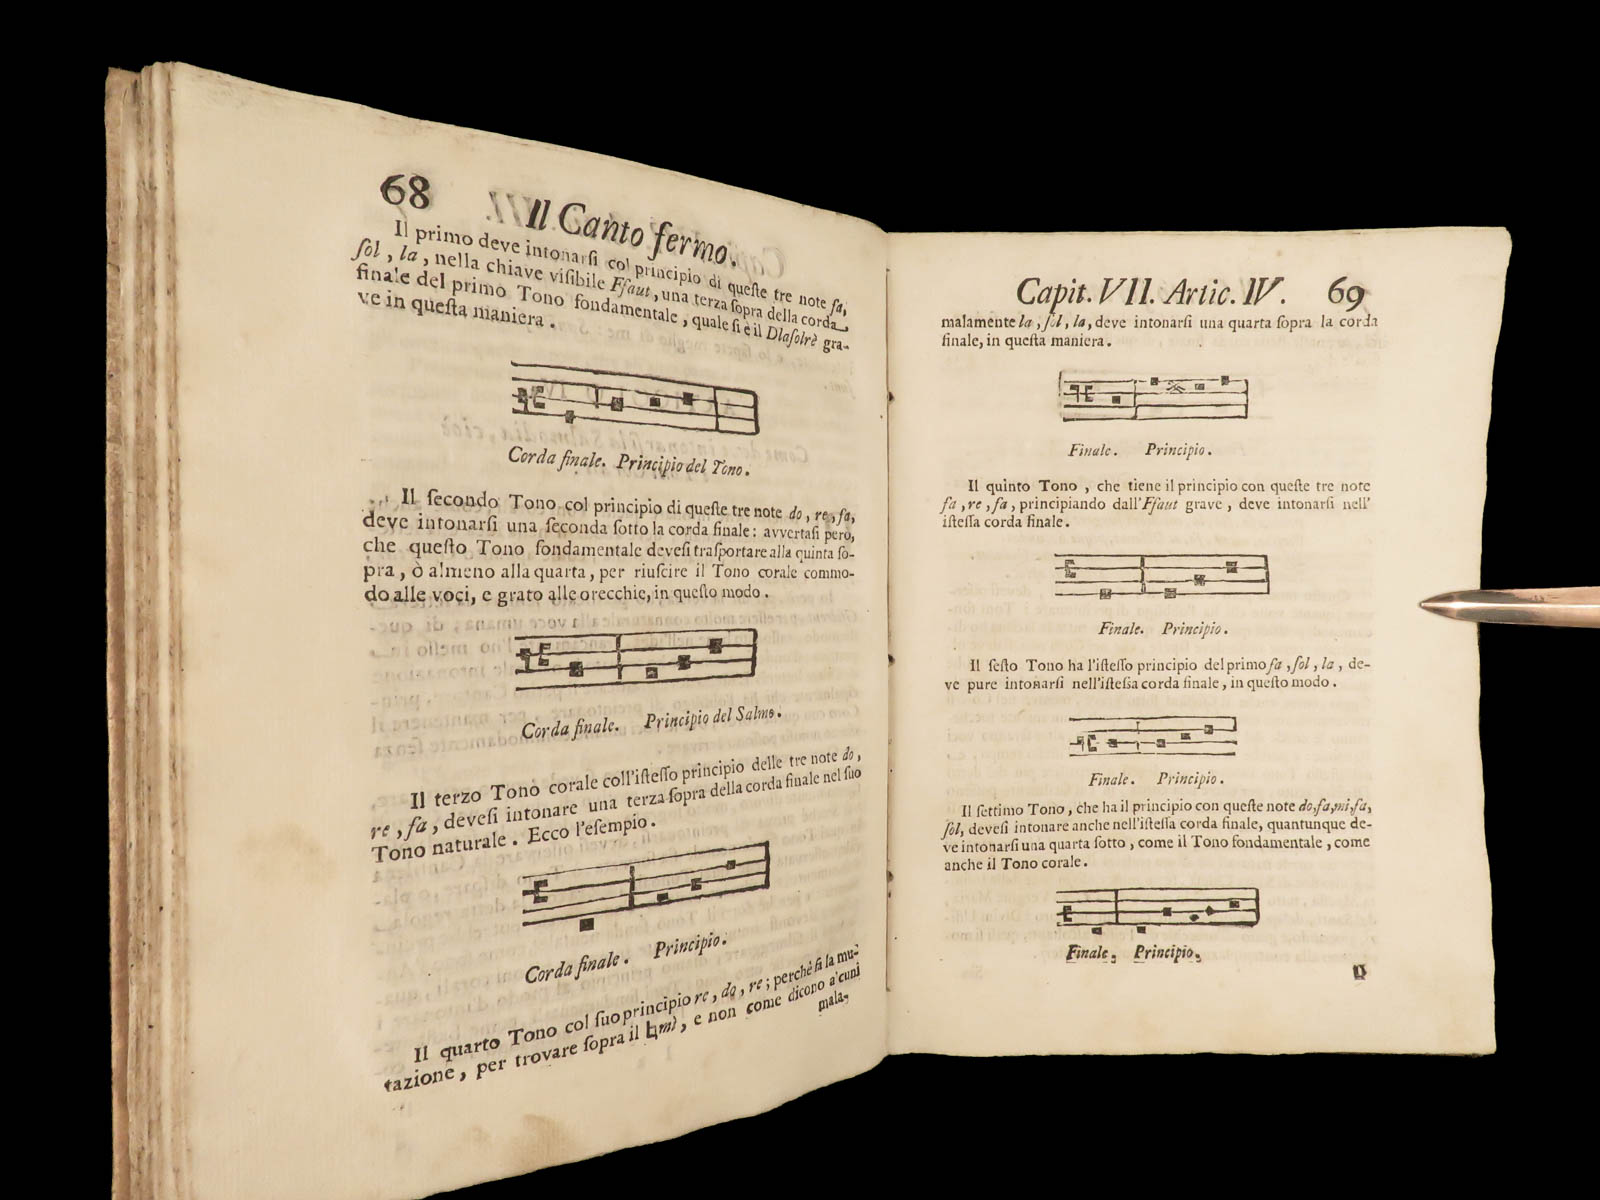 68
Il Canto fermo.
Il primo deve intonarſi col principio di queſte tre note fa,
ſol, la, nella chiave viſibile Ffaut, una terza ſopra della corda
finale del primo Tono fondamentale, quale ſi è il Dlaſolrè gra-
ve in queſta maniera.
Corda finale. Principio del Tono.
Il ſecondo Tono col principio di queſte tre note do, re, fa,
deve intonarſi una ſeconda ſotto la corda finale: avvertaſi però,
che queſto Tono fondamentale deveſi traſportare alla quinta ſo-
pra, ò almeno alla quarta, per riuſcire il Tono corale commo-
do alle voci, e grato alle orecchie, in queſto modo.
Corda finale. Principio del Salmo.
Il terzo Tono corale coll'iſteſſo principio delle tre note do,
re, fa, deveſi intonare una terza ſopra della corda finale nel ſuo
Tono naturale. Ecco l'eſempio.
Corda finale. Principio.
Il quarto Tono col ſuo principio re, do, re; perchè fà la mu-
tazione, per trovare ſopra il ♮mì, e non come dicono a'cuni
mala-
Capit. VII. Artic. IV. 69
malamente la, ſol, la, deve intonarſi una quarta ſopra la corda
finale, in queſta maniera.
Finale. Principio.
Il quinto Tono, che tiene il principio con queſte tre note
fa, re, fa, principiando dall'Ffaut grave, deve intonarſi nell'
iſteſſa corda finale.
Finale. Principio.
Il ſeſto Tono ha l'iſteſſo principio del primo fa, ſol, la, de-
ve pure intonarſi nell'iſteſſa corda finale, in queſto modo.
Finale. Principio.
Il ſettimo Tono, che ha il principio con queſte note do, fa, mi, fa,
ſol, deveſi intonare anche nell'iſteſſa corda finale, quantunque de-
ve intonarſi una quarta ſotto, come il Tono fondamentale, come
anche il Tono corale.
Finale. Principio.